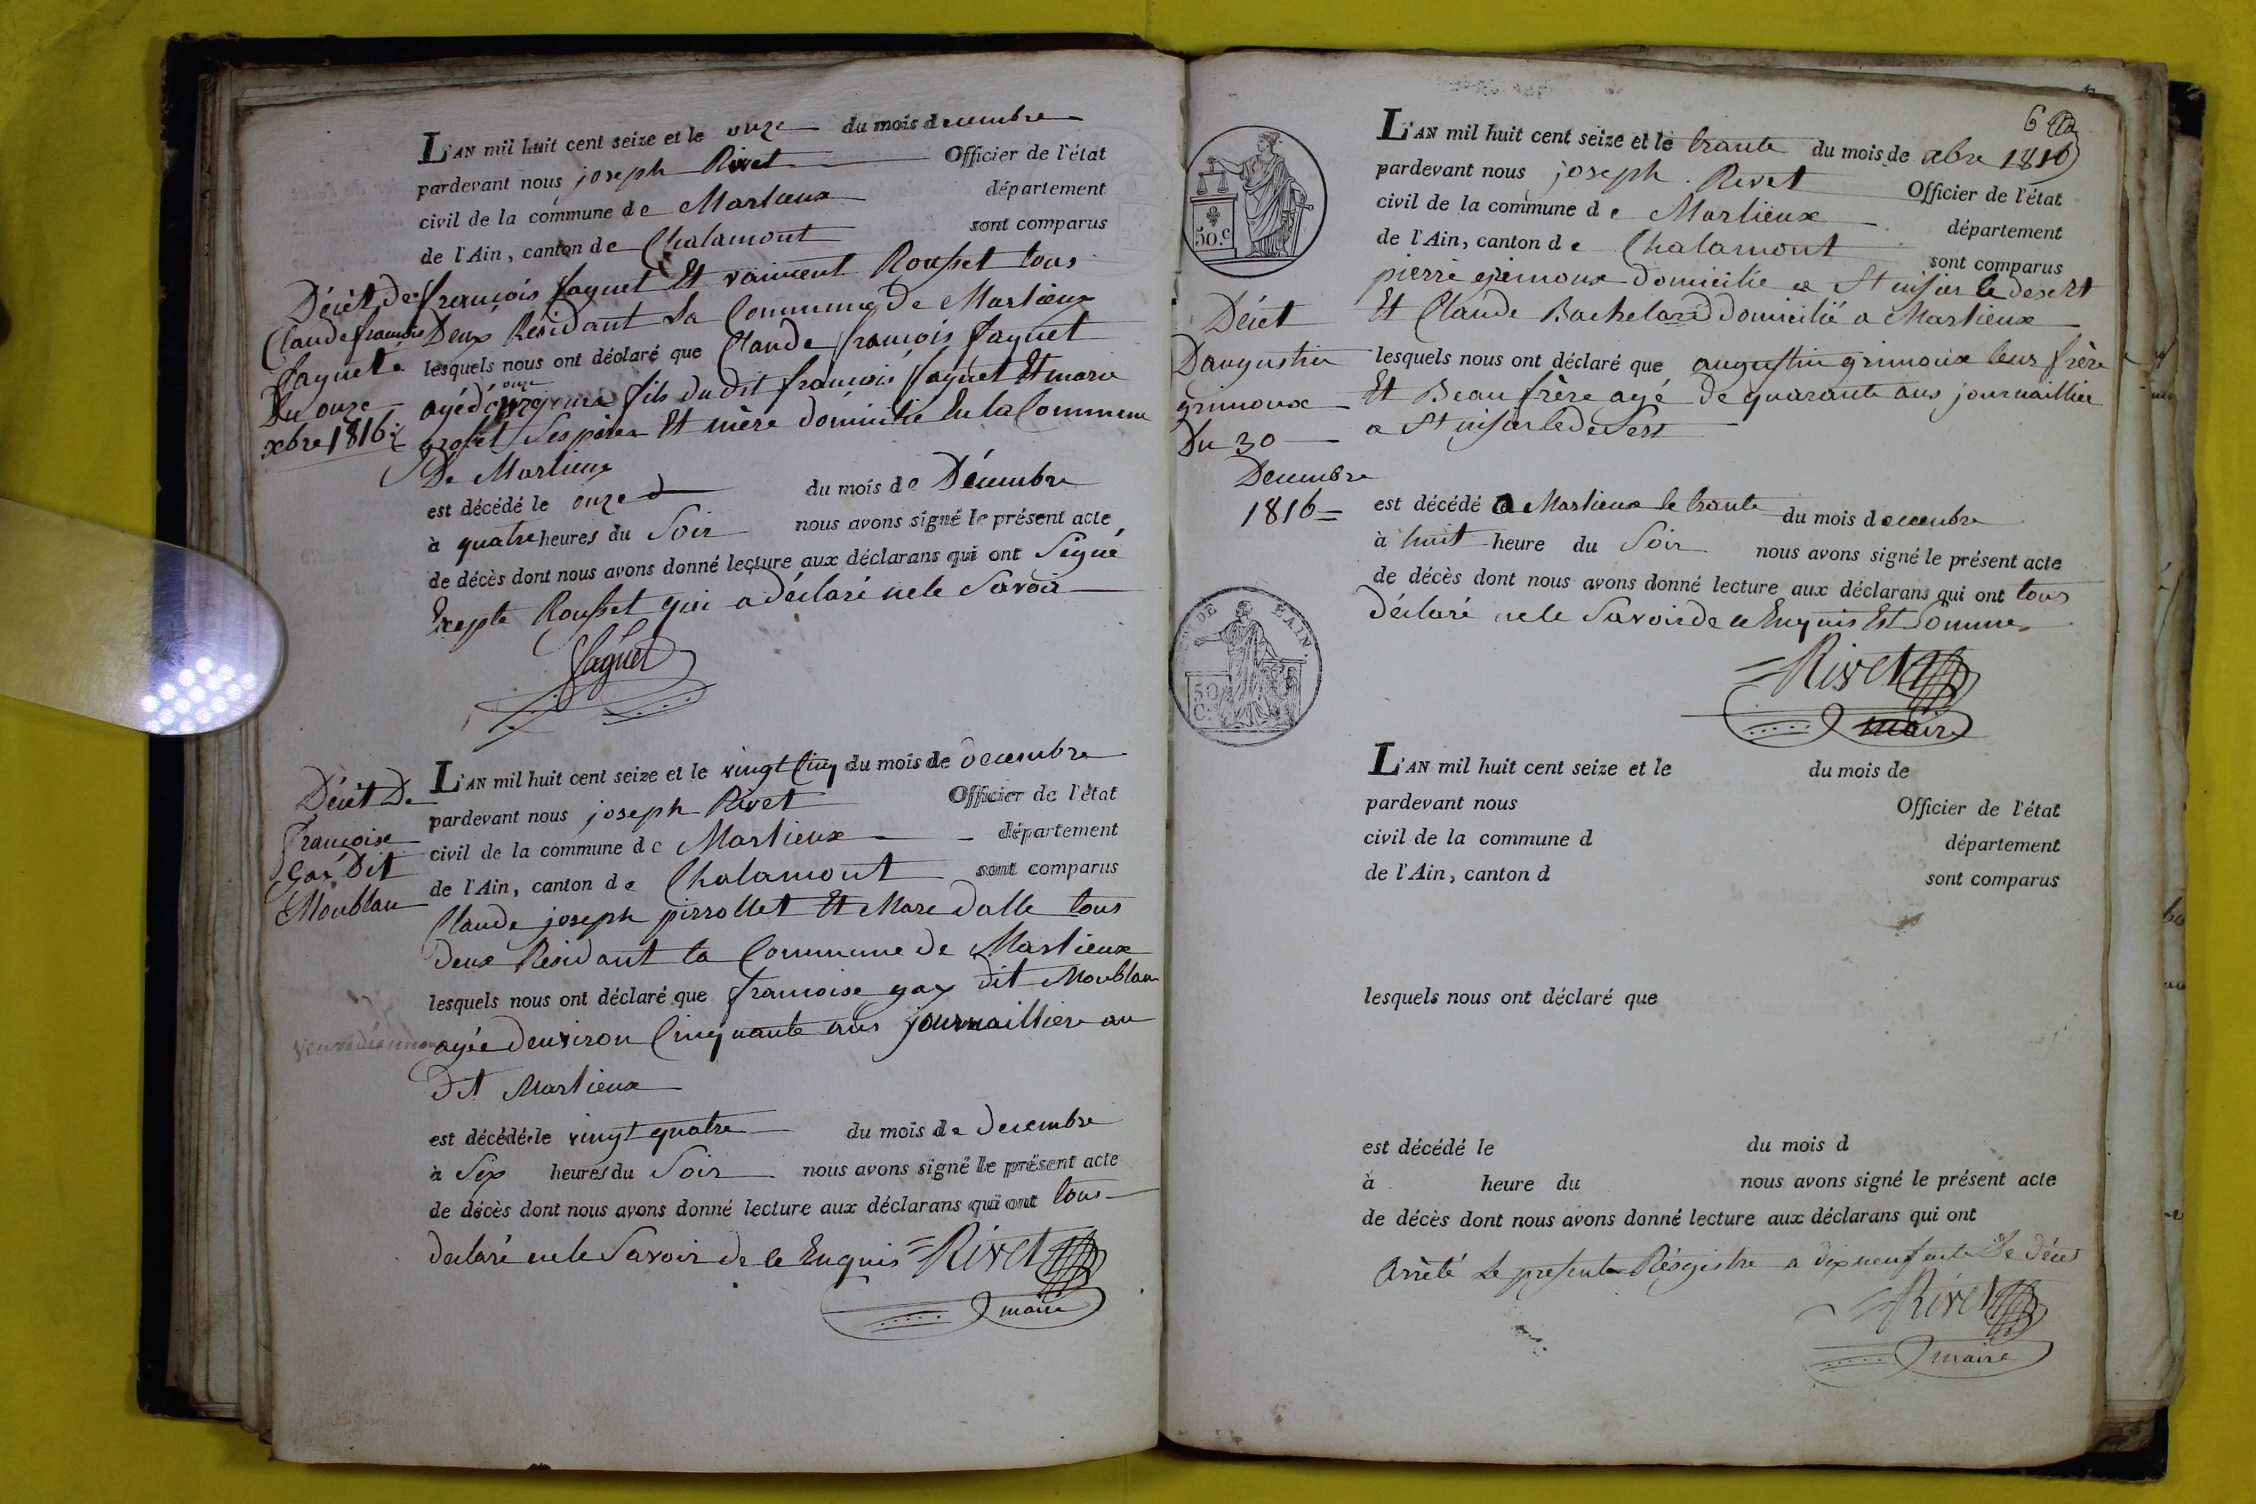 L'AN mil huit cent seize et le onze du mois decembre
pardevant nous joseph Rivet Officier de l'état
civil de la commune de Marlieux département
de l'Ain, canton de Chalamont sont comparus
françois faguet Et vaincent Rousset tous
Deux Résidant La Commune de Marlieux
lesquels nous ont déclaré que Claude françois faguet
agé de onze fils du dit françois faguet Et marie
grobet Ses père Et mère domicilié En la Commune
De Marlieux
est décédé le onze du mois de Décembre
à quatre heures du Soir nous avons signé le présent acte
de décès dont nous avons donné lecture aux déclarans qui ont Signé
Exepte Rousset qui a déclaré ne le Savoir
faguet
Décèt de
Claude françois
faguet
Du onze
xbre 1816
L'AN mil huit cent seize et le vingt Cinq du mois de decembre
pardevant nous joseph Rivet Officier de l'état
civil de la commune de Marlieux département
de l'Ain, canton de Chalamont sont comparus
Claude joseph pirrollet Et Marc dalle tous
Deux Résidant la Commune de Marlieux
lesquels nous ont déclaré que francoise gay dit Moublan
agée denviron Cinquante ans journaillière au
Dit Marlieux
est décédé le vingt quatre du mois de decembre
à Six heures du Soir nous avons signé le présent acte
de décès dont nous avons donné lecture aux déclarans qui ont tous
declaré ne le Savoir de ce Enquis Rivet
maire
Décèt De
Françoise
Gai Dit
Moublan
6
L'AN mil huit cent seize et le trante du mois de xbre 1816
pardevant nous joseph Rivet Officier de l'état
civil de la commune de Marlieux département
de l'Ain, canton de Chalamont sont comparus
pierre grimoux domicilié a St nisier le desert
Et Claude Bachelard domicilié a Marlieux
lesquels nous ont déclaré que augustin grimoux leur frère
Et Beau frère agé de quarante ans journaillier
a St nisier le desert
est décédé a Marlieux le trante du mois decembre
à huit heure du Soir nous avons signé le présent acte
de décès dont nous avons donné lecture aux déclarans qui ont tous
déclaré ne le Savoir de ce Enquis Est Sommes
Rivet
maire
50.c
Décet
Daugustin
grimoux
Du 30
Decembre
1816
DE L'AIN.
50
C.
L'AN mil huit cent seize et le du mois de
pardevant nous Officier de l'état
civil de la commune d département
de l'Ain, canton d sont comparus
lesquels nous ont déclaré que
est décédé le du mois d
à heure du nous avons signé le présent acte
de décès dont nous avons donné lecture aux déclarans qui ont
Arrèté Le present Régistre a dix neuf acte De Décès
Rivet
maire